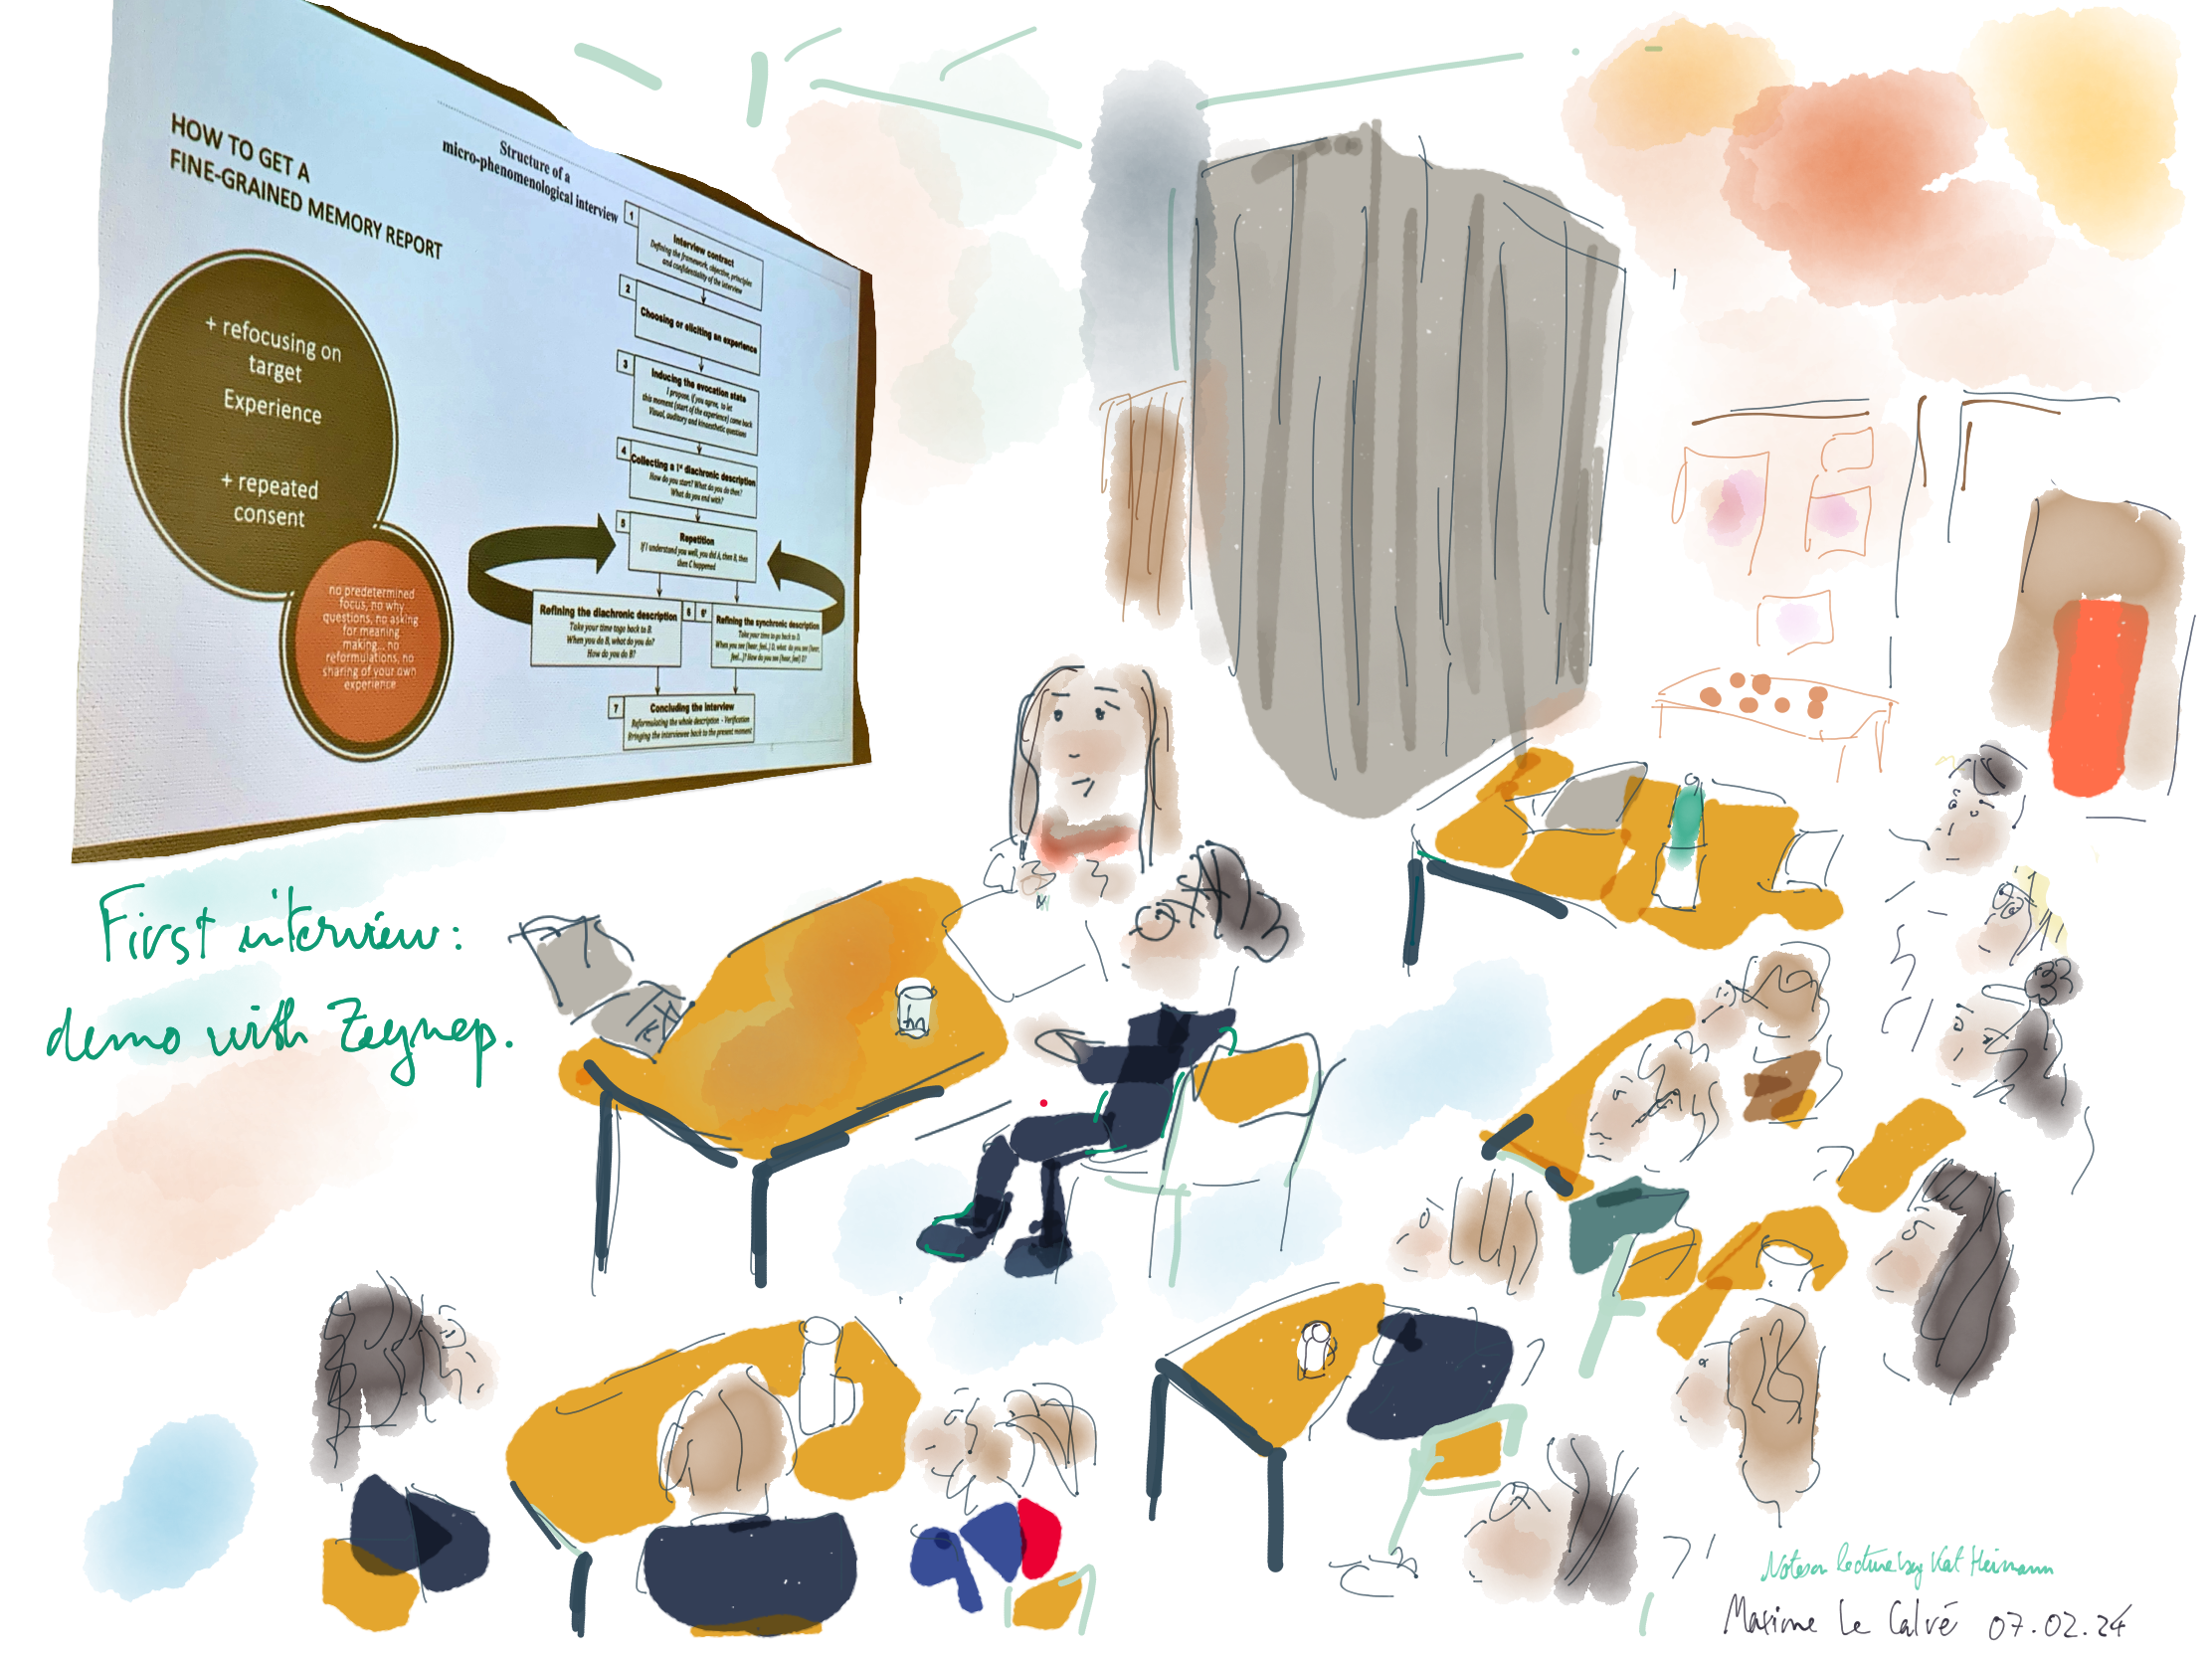 HOW TO GET A
FINE-GRAINED MEMORY REPORT
+ refocusing on
target
Experience
+ repeated
consent
no predetermined
focus, no why
questions, no asking
for meaning
making... no
reformulations, no
sharing of your own
experience
Structure of a
micro-phenomenological interview
1
Interview contract
Defining the framework, objective, principles
and confidentiality of the interview
2
Choosing or eliciting an experience
3
Inducing the evocation state
I propose, if you agree, to let
this moment (start of the experience) come back
Visual, auditory and kinaesthetic questions
4
Collecting a 1st diachronic description
How do you start? What do you do then?
What do you end with?
5
Repetition
If I understand you well, you did A, then B, then
then C happened
6
Refining the diachronic description
Take your time to go back to B.
When you do B, what do you do?
How do you do B?
6'
Refining the synchronic description
Take your time to go back to D.
When you see (hear, feel..) D, what do you see (hear,
feel...)? How do you see (hear, feel) D?
7
Concluding the interview
Reformulating the whole description - Verification
Bringing the interviewee back to the present moment
First interview:
demo with Zeynep.
Notes on lecture by Kat Heimann
Maxime Le Calvé 07.02.24